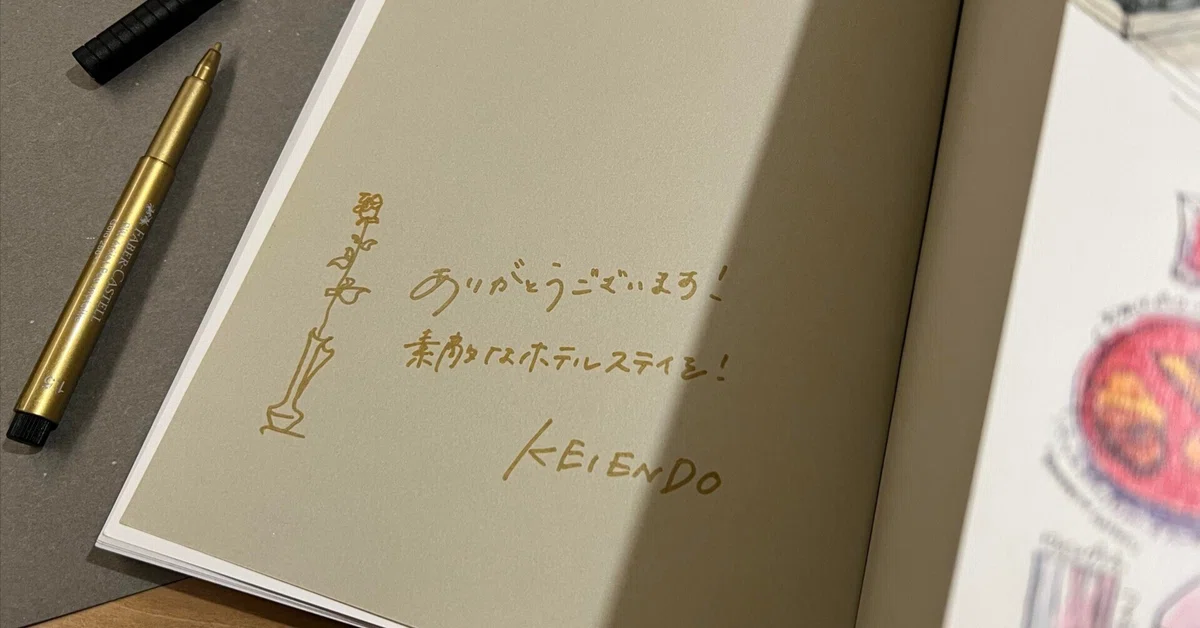 ありがとうございます！
素敵なホテルステイを！
KEI ENDO
FABER-CASTELL
1.5